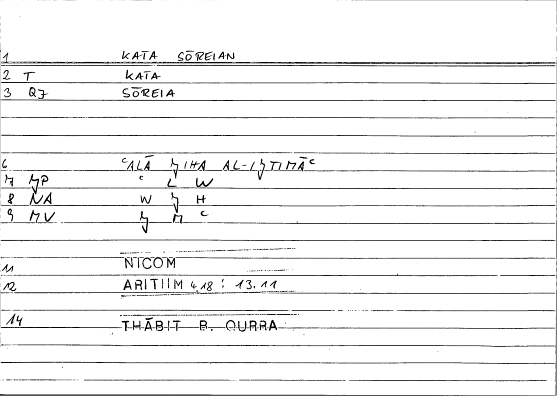 1 KATA SŌREIAN
2 T KATA
3 QJ SŌREIA
6 ʿALĀ ǦIHA AL-IǦTIMĀʿ
7 ǦP ʿ L W
8 NA W Ǧ H
9 MV Ǧ M ʿ
11 NICOM
12 ARITIIM 4,18 : 13.11
14 THĀBIT B. QURRA